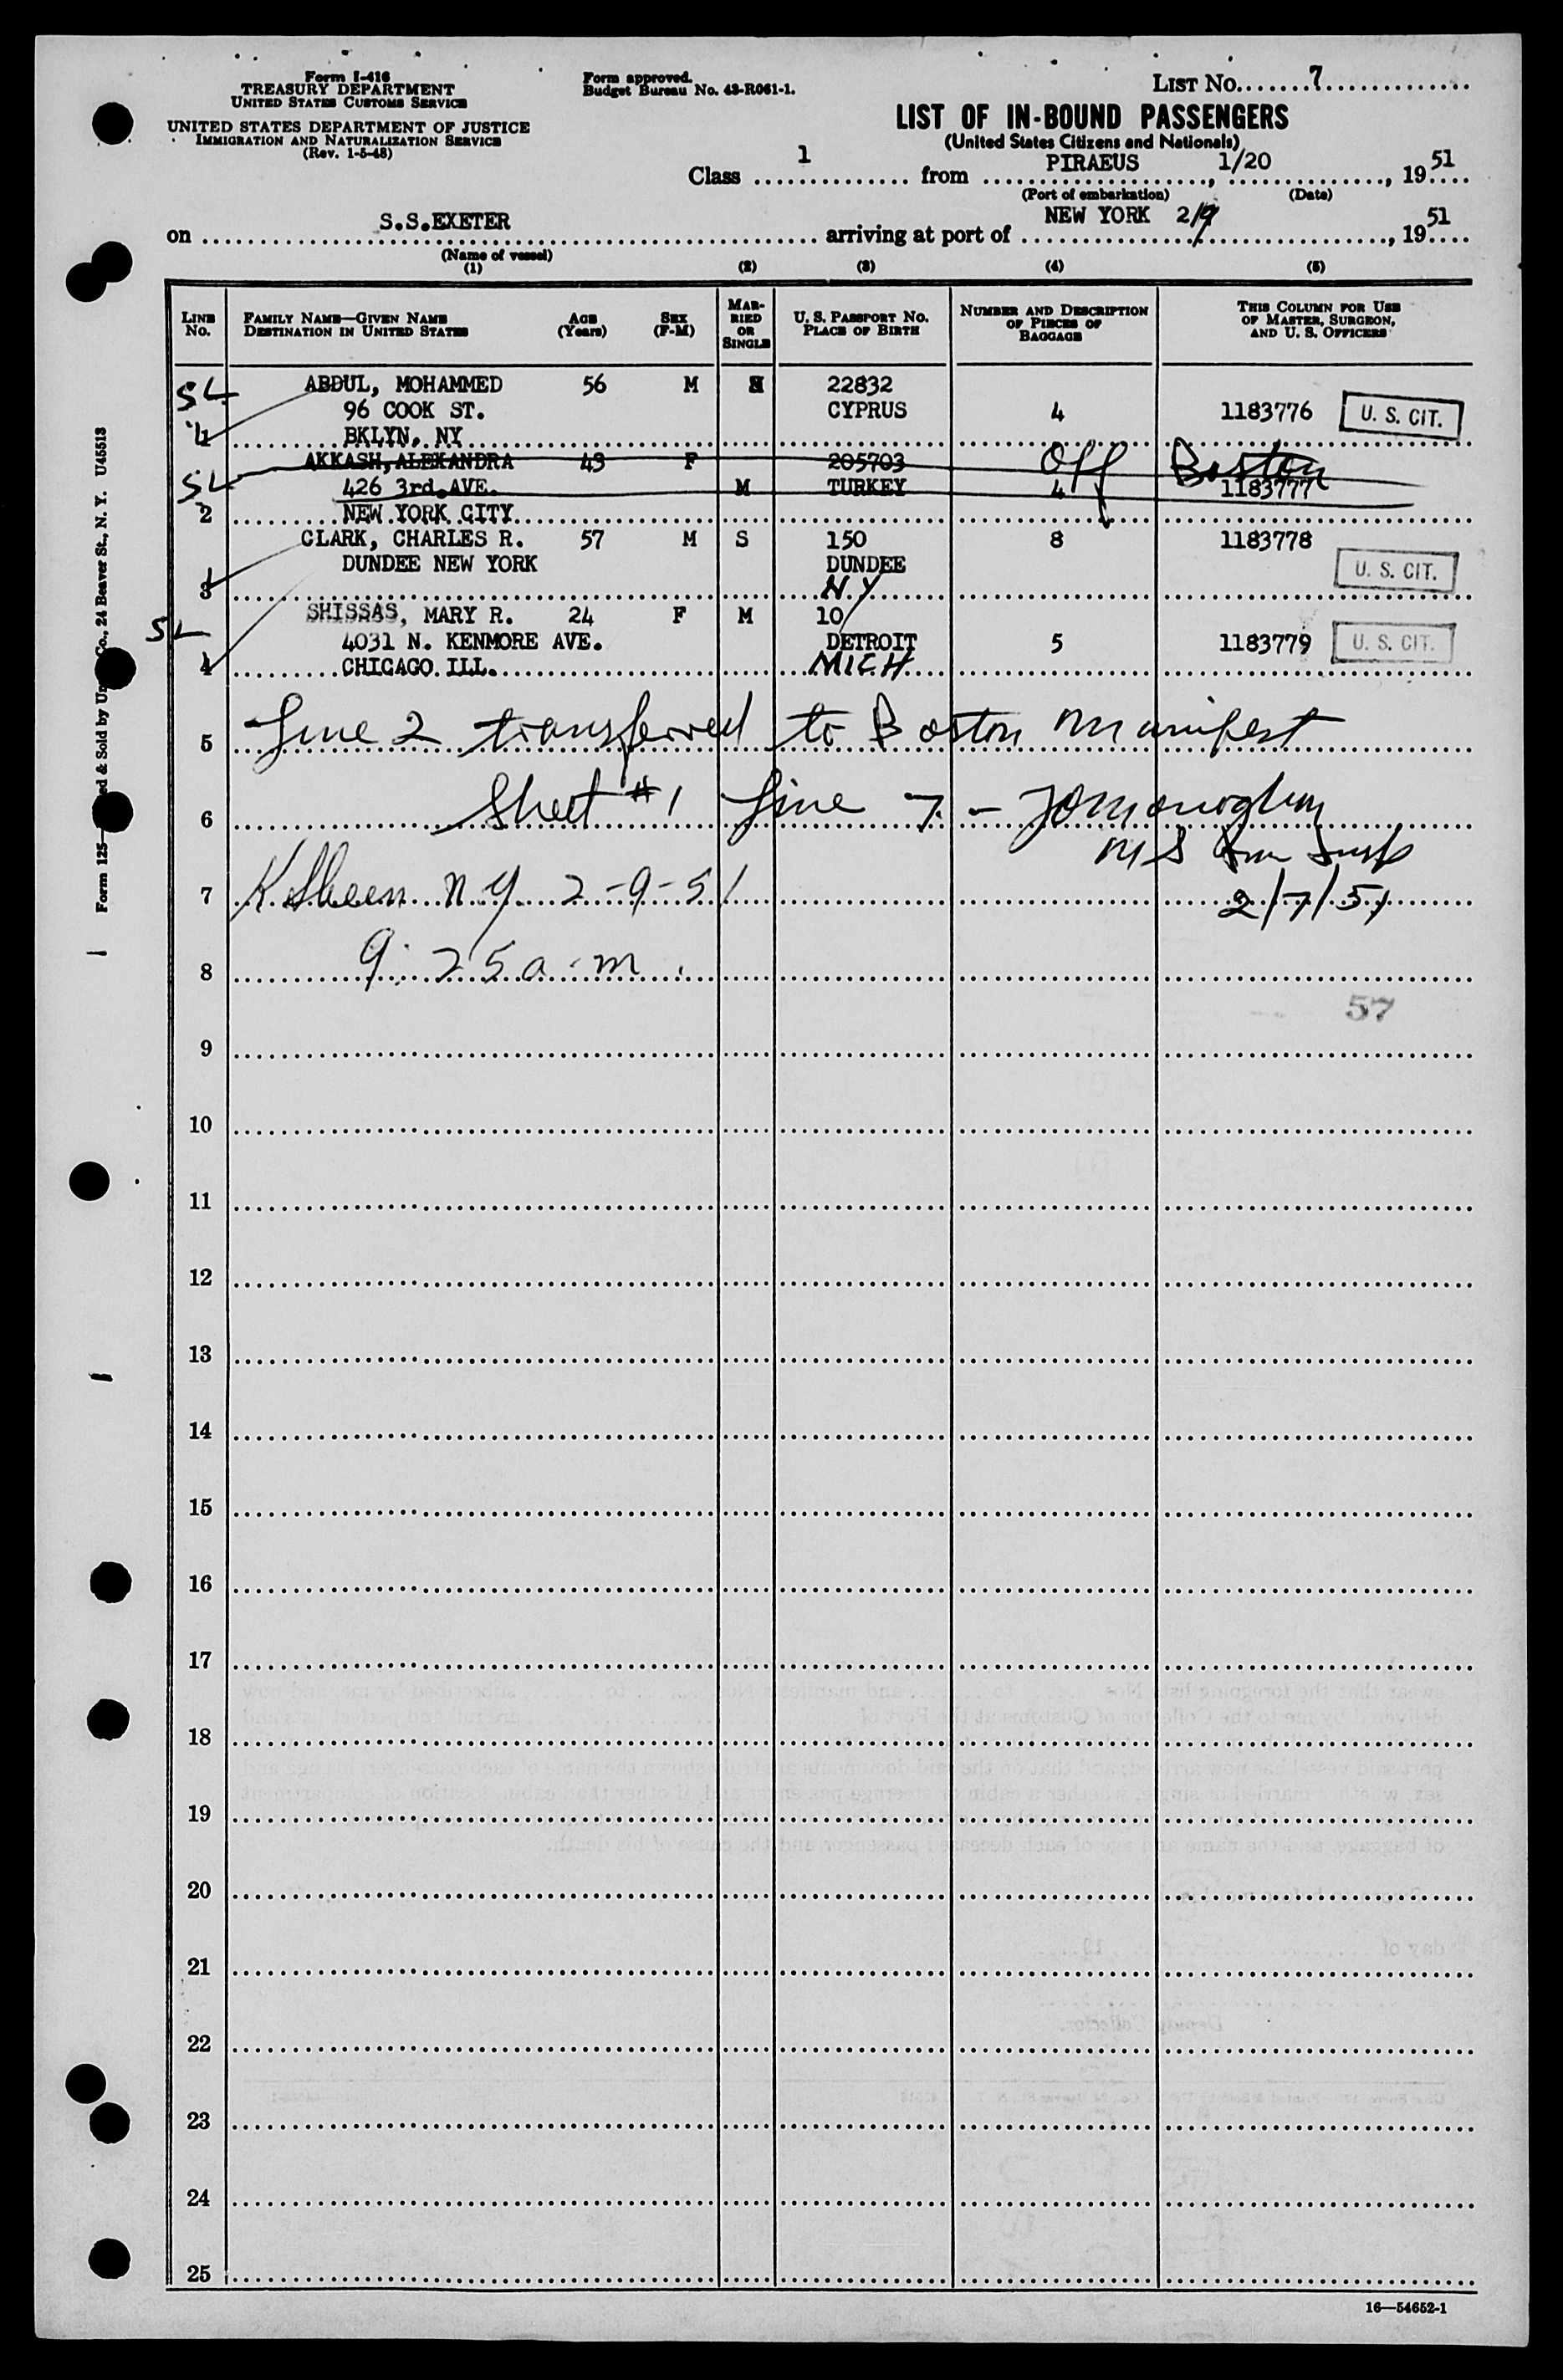 Form I-416
TREASURY DEPARTMENT
UNITED STATES CUSTOMS SERVICE
UNITED STATES DEPARTMENT OF JUSTICE
IMMIGRATION AND NATURALIZATION SERVICE
(Rev. 1-5-48)
Form approved.
Budget Bureau No. 43-R061-1.
LIST No. 7
LIST OF IN-BOUND PASSENGERS
(United States Citizens and Nationals)
Class 1 from PIRAEUS, 1/20, 1951
(Port of embarkation) (Date)
on S.S.EXETER arriving at port of NEW YORK 2/9, 1951
(Name of vessel)
(1) (2) (3) (4) (5)
LINE No. FAMILY NAME—GIVEN NAME DESTINATION IN UNITED STATES AGE (Years) SEX (F-M) MARRIED OR SINGLE U. S. PASSPORT NO. PLACE OF BIRTH NUMBER AND DESCRIPTION OF PIECES OF BAGGAGE THIS COLUMN FOR USE OF MASTER, SURGEON, AND U. S. OFFICERS
SL ABDUL, MOHAMMED 56 M 22832
96 COOK ST. CYPRUS 4 1183776 U. S. CIT.
1 BKLYN, NY
AKKASH, ALEXANDRA 43 F 205703 Off Boston
SL 426 3rd.AVE. M TURKEY 4 1183777
2 NEW YORK CITY
CLARK, CHARLES R. 57 M S 150 8 1183778
DUNDEE NEW YORK DUNDEE U. S. CIT.
3 N.Y
SHISSAS, MARY R. 24 F M 10
SL 4031 N. KENMORE AVE. DETROIT 5 1183779 U. S. CIT.
4 CHICAGO ILL. MICH
5 Line 2 transferred to Boston Manifest
6 Sheet #1 Line 7 -
7 N.Y. 2-9-51 2/7/51
8 9:25 a.m.
57
9
10
11
12
13
14
15
16
17
18
19
20
21
22
23
24
25
16—54652-1
Co., 24 Beaver St., N. Y. U45513
Form 125— ed & Sold by Un